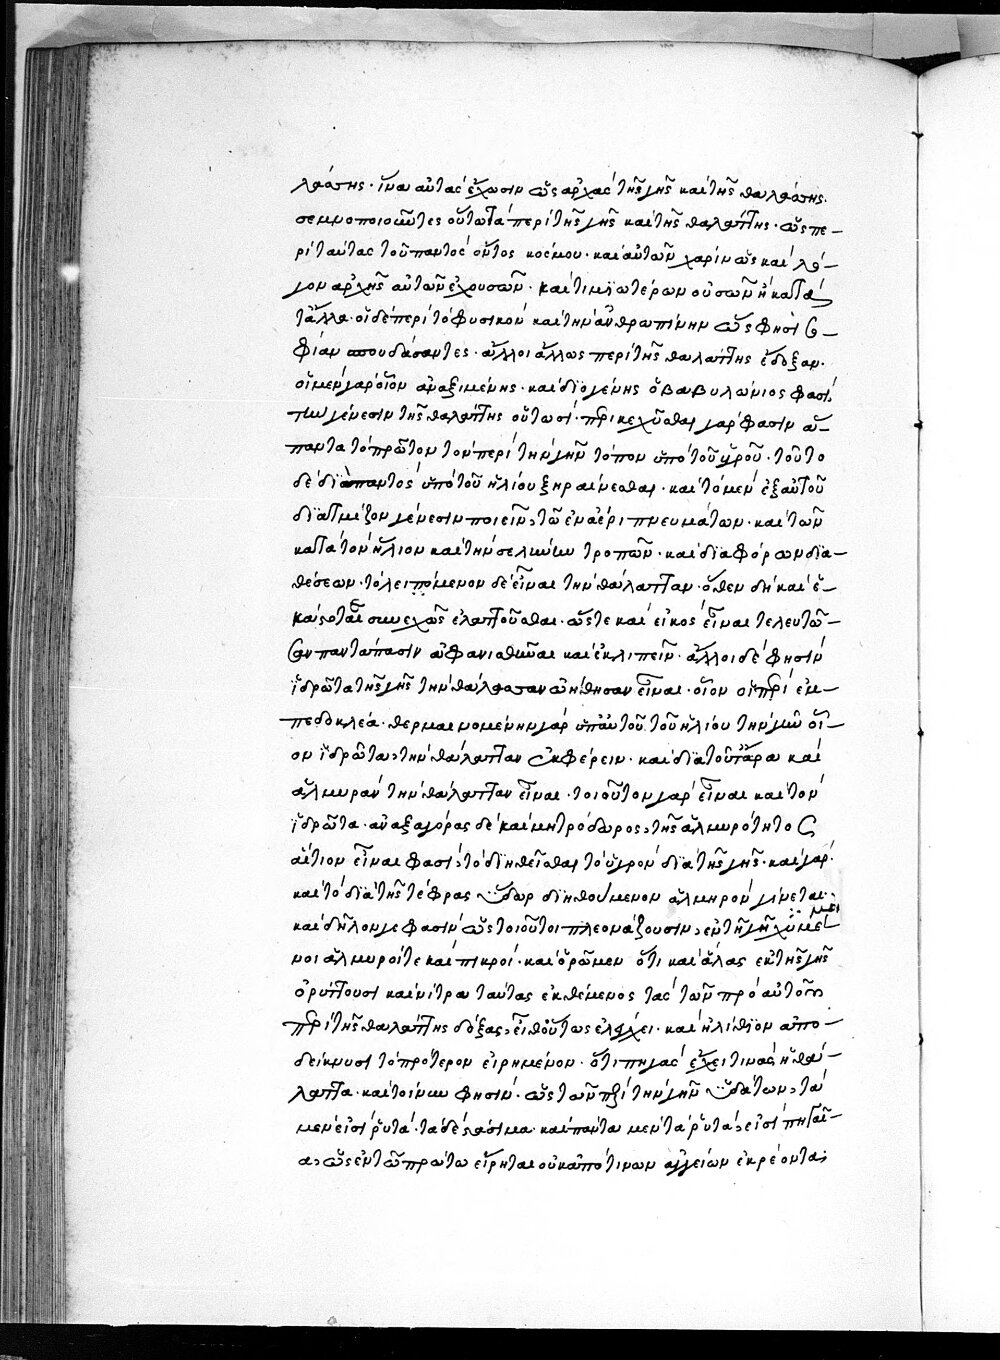 λάσσης· ἵνα αὐτὰς ἔχωσιν ὡς ἀρχὰς τῆς γῆς καὶ τῆς θαλάσσης.
σεμνοποιοῦντες οὕτω τὰ περὶ τῆς γῆς καὶ τῆς θαλάττης· ὡς πε-
ρὶ ταύτας τοῦ παντὸς ὄντος κόσμου· καὶ αὐτῶν χάριν ὡς καὶ λό-
γον ἀρχῆς αὐτῶν ἐχουσῶν· καὶ τιμιωτέρων οὐσῶν ἢ κατὰ
τἄλλα· οἱ δὲ περὶ τὸ φυσικὸν καὶ τὴν ἀνθρωπίνην ὥς φησι σο-
φίαν σπουδάσαντες· ἄλλοι ἄλλως περὶ τῆς θαλάττης ἔδοξαν·
οἱ μὲν γὰρ οἷον ἀναξιμένης· καὶ διογένης ὁ βαβυλώνιος φασὶ
τὴν γένεσιν τῆς θαλάττης οὑτωσί· περικεχῦσθαι γάρ φασιν ἅ-
παντα τὸ πρῶτον τὸν περὶ τὴν γῆν τόπον ὑπὸ τοῦ ὑγροῦ· τοῦτο
δὲ διαπαντὸς ὑπὸ τοῦ ἡλίου ξηραίνεσθαι· καὶ τὸ μὲν ἐξ αὐτοῦ
διατμίζον γένεσιν ποιεῖν τῶ ἐν ἀέρι πνευμάτων· καὶ τῶν
κατὰ τὸν ἥλιον καὶ τὴν σελήνην τροπῶν· καὶ διαφόρων δια-
θέσεων· τὸ λειπόμενον δὲ εἶναι τὴν θάλατταν· ὅθεν δὴ καὶ ἑ-
κάστοτε συνεχῶς ἐλαττοῦσθαι· ὥστε καὶ εἰκὸς εἶναι τελευτῶ-
σαν παντάπασιν ἀφανισθῆναι καὶ ἐκλιπεῖν· ἄλλοι δέ φησιν
ἱδρῶτα τῆς γῆς τὴν θάλασσαν ᾠήθησαν εἶναι· οἷον οἱ περὶ ἐμ-
πεδοκλέα· θερμαινομένην γὰρ ὑπ' αὐτοῦ τοῦ ἡλίου τὴν γῆν οἷ-
ον ἱδρῶτα τὴν θάλατταν ἐκφέρειν· καὶ διατοῦτ' ἄρα καὶ
ἁλμυρὰν τὴν θάλατταν εἶναι· τοιοῦτον γὰρ εἶναι καὶ τὸν
ἱδρῶτα· ἀναξαγόρας δὲ καὶ μητρόδωρος τῆς ἁλμυρότητος
αἴτιον εἶναι φασὶ τὸ διηθεῖσθαι τὸ ὑγρὸν διὰ τῆς γῆς· καὶ γὰρ
καὶ τὸ διὰ τῆς τέφρας ὕδωρ διηθούμενον ἁλμηρὸν γίνεται·
καὶ δῆλον γε φασὶν ὡς τοιοῦτοι πλεονάζουσιν ἐν τῆ γῆ χυμοὶ
νοι ἁλμυροί τε καὶ πικροί· καὶ ὁρῶμεν ὅτι καὶ ἅλας ἐκ τῆς γῆς
ὀρύττουσι καὶ νίτρα ταύτας ἐκθέμενος τὰς τῶν πρὸ αὐτοῦ
περὶ τῆς θαλάττης δόξας εἶθ' οὕτως ἐλέγχει· καὶ ἠλίθιον ἀπο-
δείκνυσι τὸ πρότερον εἰρημένον· ὅτι πηγὰς ἔχει τινὰς ἡ θά-
λαττα· καὶ τοίνυν φησίν· ὡς τῶν περὶ τὴν γῆν ὑδάτων τὰ
μέν εἰσι ῥυτά· τὰ δὲ στάσιμα· καὶ πάντα μὲν τὰ ῥυτὰ εἰσὶ πηγαῖ-
α ὡς ἐν τῶ πρώτω εἴρηται οὐκ ἀπό τινων ἀγγείων ἐκρέοντα